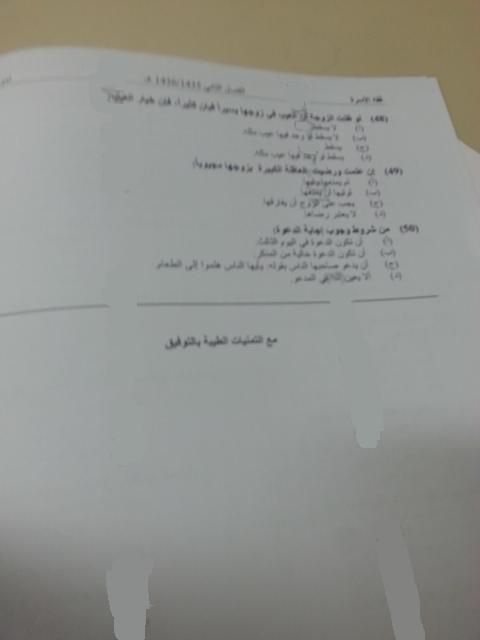 فقه الأسرة الفصل الثاني 1435/1434 هـ
(48) لو ظنت الزوجة أن العيب في زوجها يسيراً فبان كثيراً، فإن خيار
(أ) لا يسقط.
(ب) لا يسقط لو وجد فيها عيب مثله.
(ج) يسقط
(د) يسقط لو وجد فيها عيب مثله.
(49) إن علمت ورضيت العاقلة الكبيرة بزوجها مجبوباً:
(أ) لم يمنعها وليها.
(ب) لوليها أن
(ج) يجب على الزوج أن يفارقها.
(د) لا يعتبر رضاها.
(50) من شروط وجوب إجابة الدعوة:
(أ) أن تكون الدعوة في اليوم الثالث.
(ب) أن تكون الدعوة خالية من المنكر.
(ج) أن يدعو صاحبها الناس بقوله: يأيها الناس هلموا إلى الطعام
(د) ألا يعين المدعو.
مع التمنيات الطيبة بالتوفيق